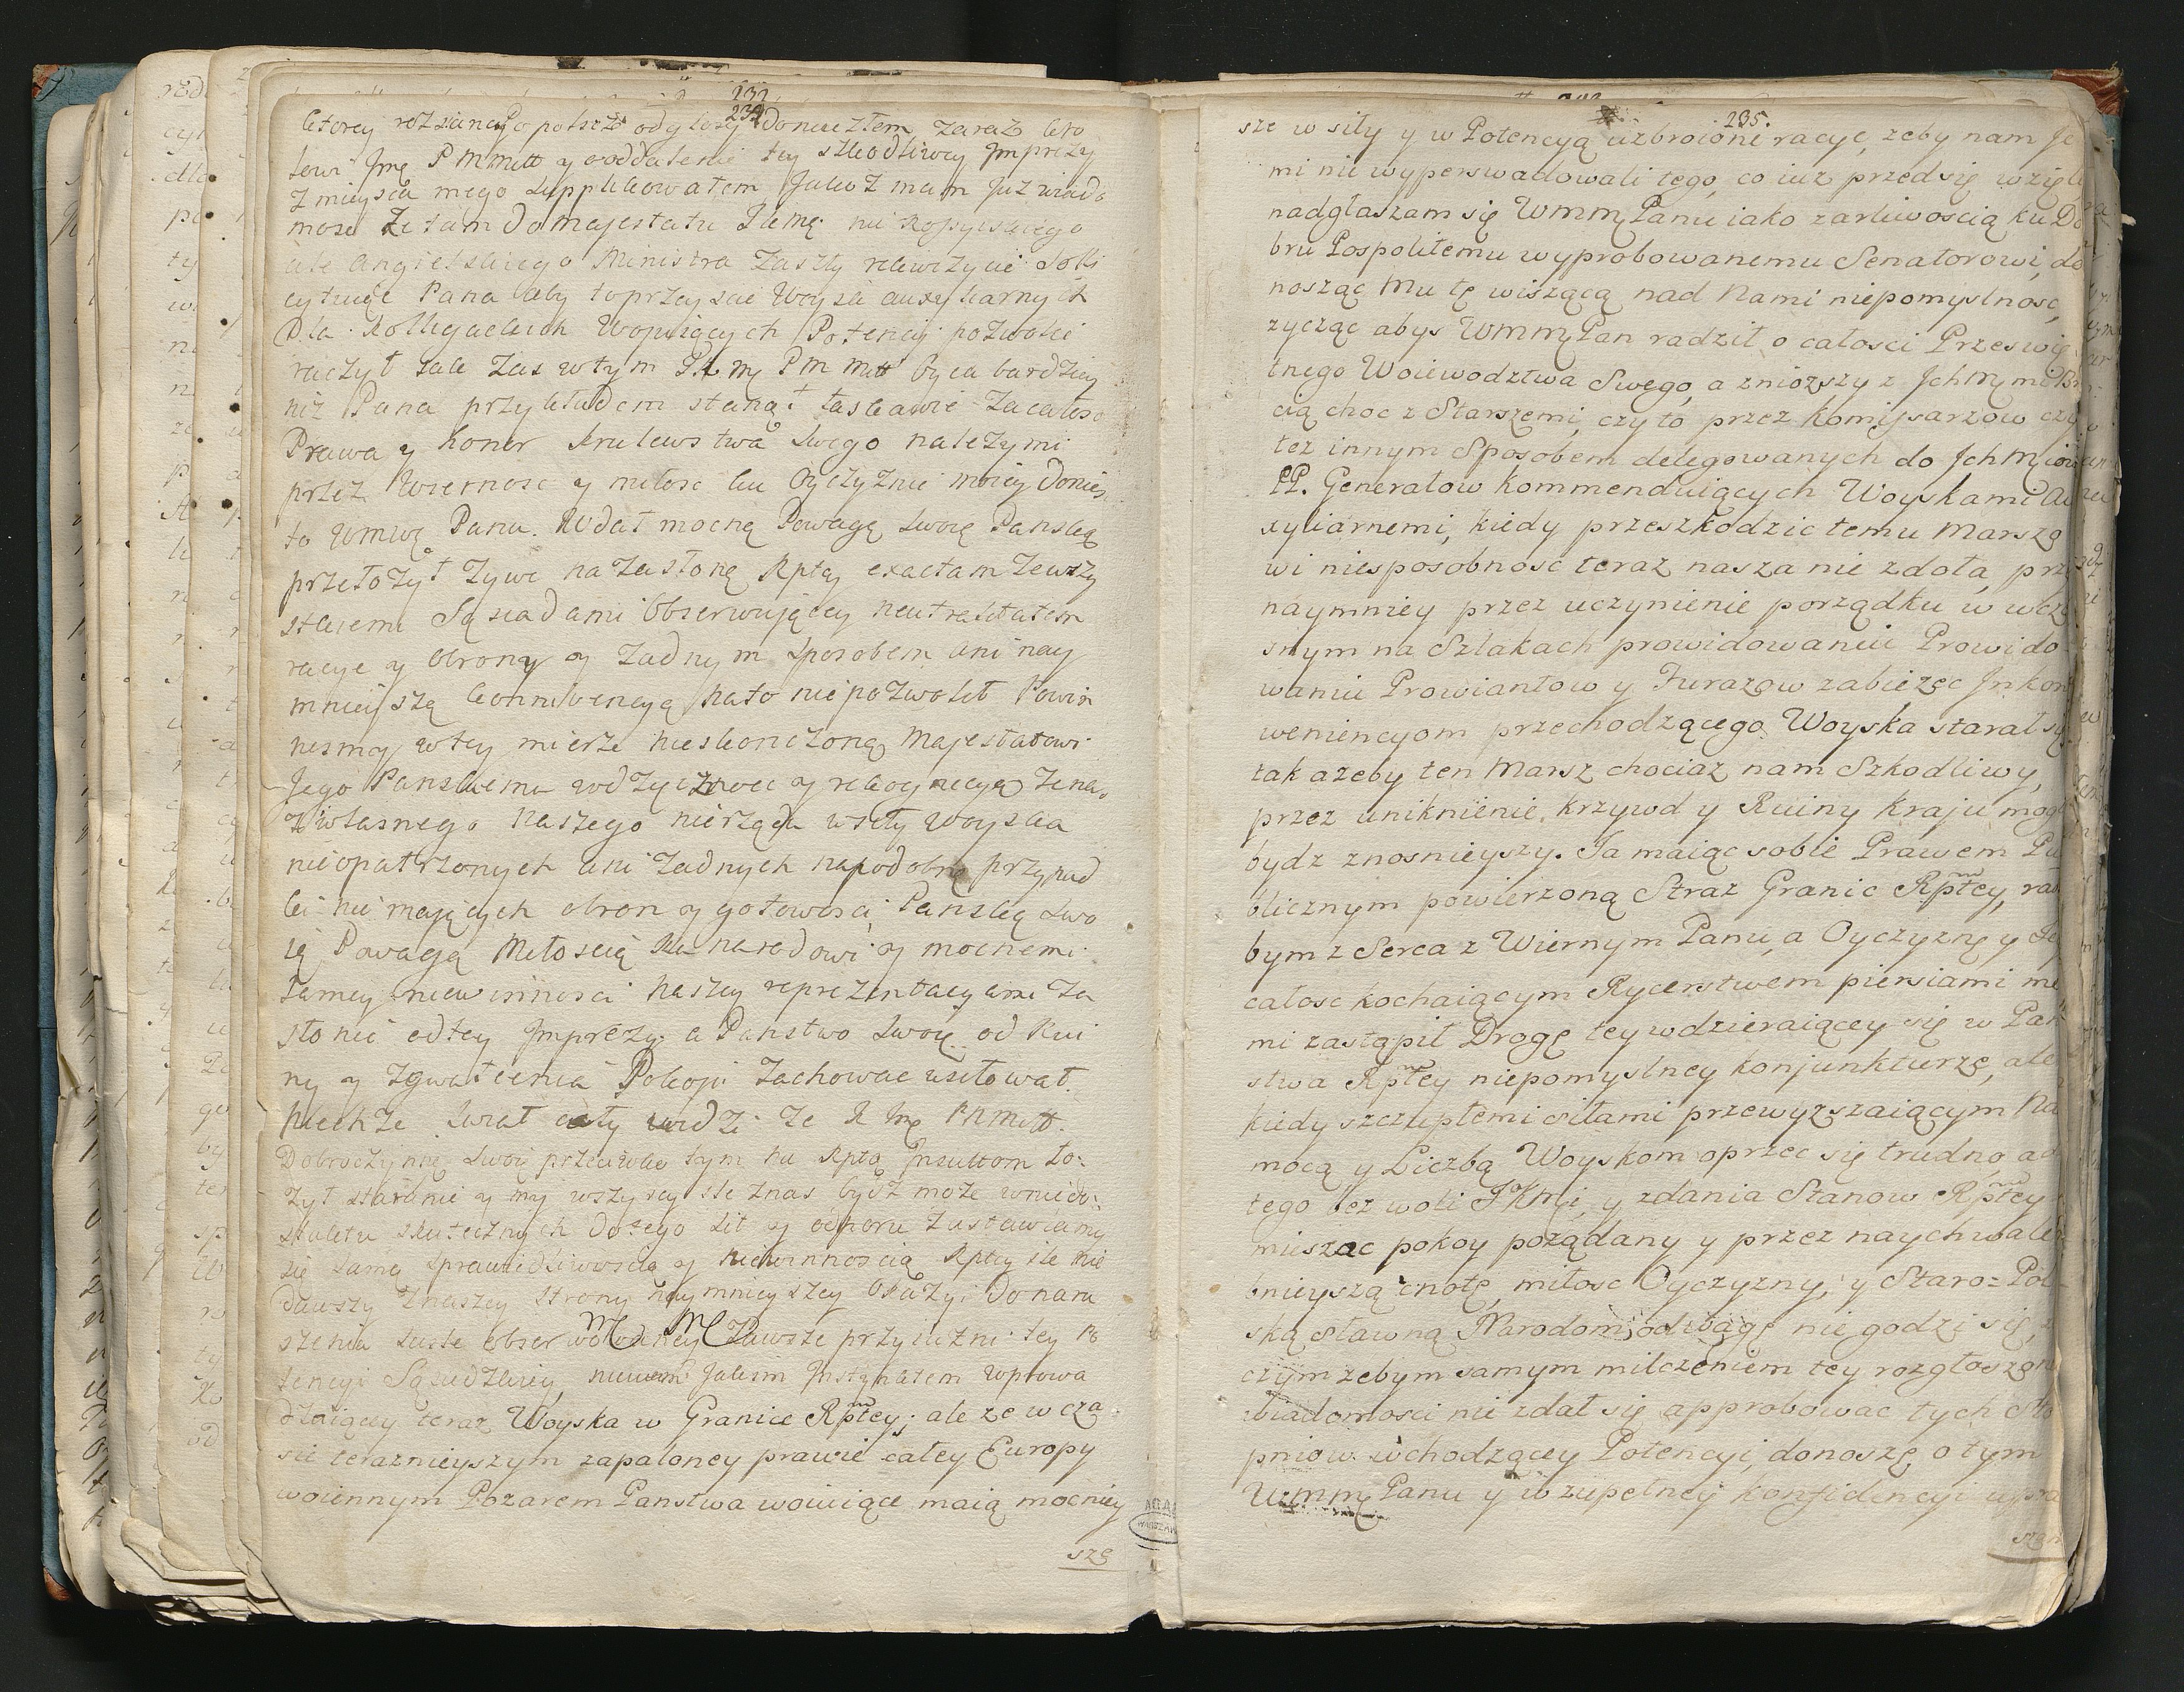 232
234
ktorey rozsianego potszże odgłosy doneszłem, zaraz kro
lowi Jmę P M Mttt y o oddalenie tey szkodliwey Imprezy
z mieysca mego supplikowałem Jakoż mam już wiado
mość że tam do majestatu
ale Angielskiego Ministra zaszły
cytuiąc Pana aby to przeyscie Woysk auxyliarnych
Dla Kolligackich Woiuiących Potencyi pozwolić
raczył iako zas w tym P M Mtt oyca bardziey
niż Pana przykładem stanął łaskawie za całosc
Prawa y honor krolewstwa swego należy mi
przez wiernosc y miłosc ku Oyczyznie moiey donies
to WMMę Panu. Wdał mocną Powagę swoią Panską
przełożył żywe na zasłonę Rptey exactam zewszy
stkiemi Sąsiadami obserwuiącey neutralitatem
racye y obrony y żadnym sposobem ani nay
mnieyszą konniwencyą na to nie pozwolił Powin
nesmy w tey mierze nieskonczoną Majestatowi
Jego Panskiemu wdzięcznosc y rekognicyą że na
z własnego naszego nierządu w siły woyska
nieopatrzonych ani żadnych na podobne przypad
ki nie maiących obron y gotowosci, Panską swo
ią Powagą Miłoscią ku narodowi y mocnemi
samey niewinnosci naszey reprezentacyami za
słonić od tey Imprezy a Panstwo swoie od Rui
ny y zgwałcenia Pokoju zachować usiłował.
Niechże swiat cały widzi że
Dobroczynnę swoię przeciwko tym na Rptą Insultom ło:
żył staranie y my wszyscy ile z nas bydz może w niedo:
statku skutecznych do tego sił y odporu zastawiamy
się samą sprawiedliwoscią y niewinnoscią Rptey ile nie
dawszy z naszey strony naymnieyszey okazyi do naru
szenia zawsze przyiazni tey Po
tencyi Sąsiedzkiey, niewiem jakim Instynktem wprowa
dzaiącey teraz Woyska w Granice Rptey; ale ze w cza
sie terazniejszym zapaloney prawie całey Europy
woiennym Pożarem Panstwa woiuiące maią mocniey
szę
235.
sze w siły y w Potencyą uzbroione racye, zeby nam Je
mi nie wyperswadowali tego, co iuż przed się wzięli
nadgłaszam się WMMę Panu iako zarliwoscią ku Do
bru Pospolitemu wyprobowanemu Senatorowi, do
nosząc Mu tę wiszącą nad Nami niepomyslnosc,
zycząc abys WMMę Pan radził o całosci Przeswię
tnego Woiewodztwa Swego, a zniozszy z Jch Mę mi Br
cią choc z Starszemi, czy to przez Komissarzow czy
tez innym Sposobem delegowanych do Jch Mciow
PP. Generałow Kommenduiących Woyskami Au
xyliarnemi, kiedy przeszkodzic temu Marszo
wi niesposobnosc teraz nasza nie zdoła, prz
naymniey przez uczynienie porządku w wcze
snym na Szlakach prowidowaniu Prowido
waniu Prowiantow y Furazow zabiezec Jnkon
weniencyom przechodzącego Woyska starał się
tak azeby ten Marsz chociaz nam Szkodliwy,
przez uniknienie krzywd y Ruiny kraju mogł
bydz znosnieyszy. Ja maiąc sobie Prawem Pu
blicznym powierzoną Straz Granic Rptey, rad
bym z Serca z Wiernym Panu, a Oyczyznę y Jey
całosc kochaiącym Rycerstwem piersiami me
mi zastąpił Drogę tey wdzieraiącey się w Pan
stwa Rptey niepomyslney konjunkturze, ale
kiedy szczupłemi siłami przewyzszaiącym Na
mocą y Liczbą Woyskom oprzec się trudno, a
tego bez woli JKMci, y zdania Stanow Rptey
mieszac pokoy pożądany y przez naychwale
bnieyszą cnotę, miłosc Oyczyzny, y Staro=Pol
ską sławną Narodom odwagę nie godzi się,
czym zebym samym milczeniem tey rozgłoszon
wiadomosci nie zdał się approbowac tych Sto
pniow wchodzącey Potencyi, donoszę o tym
WMMę Panu y w zupełney konfidencyi upra
szam